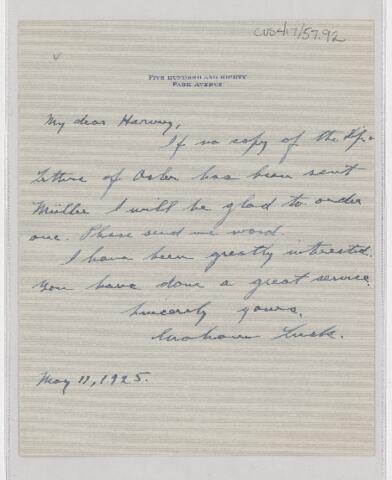 CUS417/57.92
FIVE HUNDRED AND EIGHTY
PARK AVENUE
My dear Harvey,
If no copy of the Life
& Letters of Osler has been sent
Müller I will be glad to order
one. Please send me word.
I have been greatly interested.
You have done a great service.
Sincerely yours,
Graham Lusk.
May 11, 1925.